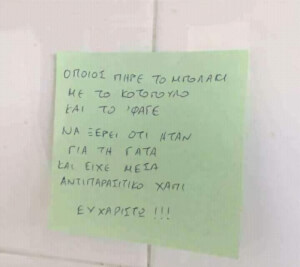 ΟΠΟΙΟΣ ΠΗΡΕ ΤΟ ΜΠΟΛΑΚΙ
ΜΕ ΤΟ ΚΟΤΟΠΟΥΛΟ
ΚΑΙ ΤΟ 'ΦΑΓΕ
ΝΑ ΞΕΡΕΙ ΟΤΙ ΗΤΑΝ
ΓΙΑ ΤΗ ΓΑΤΑ
ΚΑΙ ΕΙΧΕ ΜΕΣΑ
ΑΝΤΙΠΑΡΑΣΙΤΙΚΟ ΧΑΠΙ
ΕΥΧΑΡΙΣΤΩ !!!